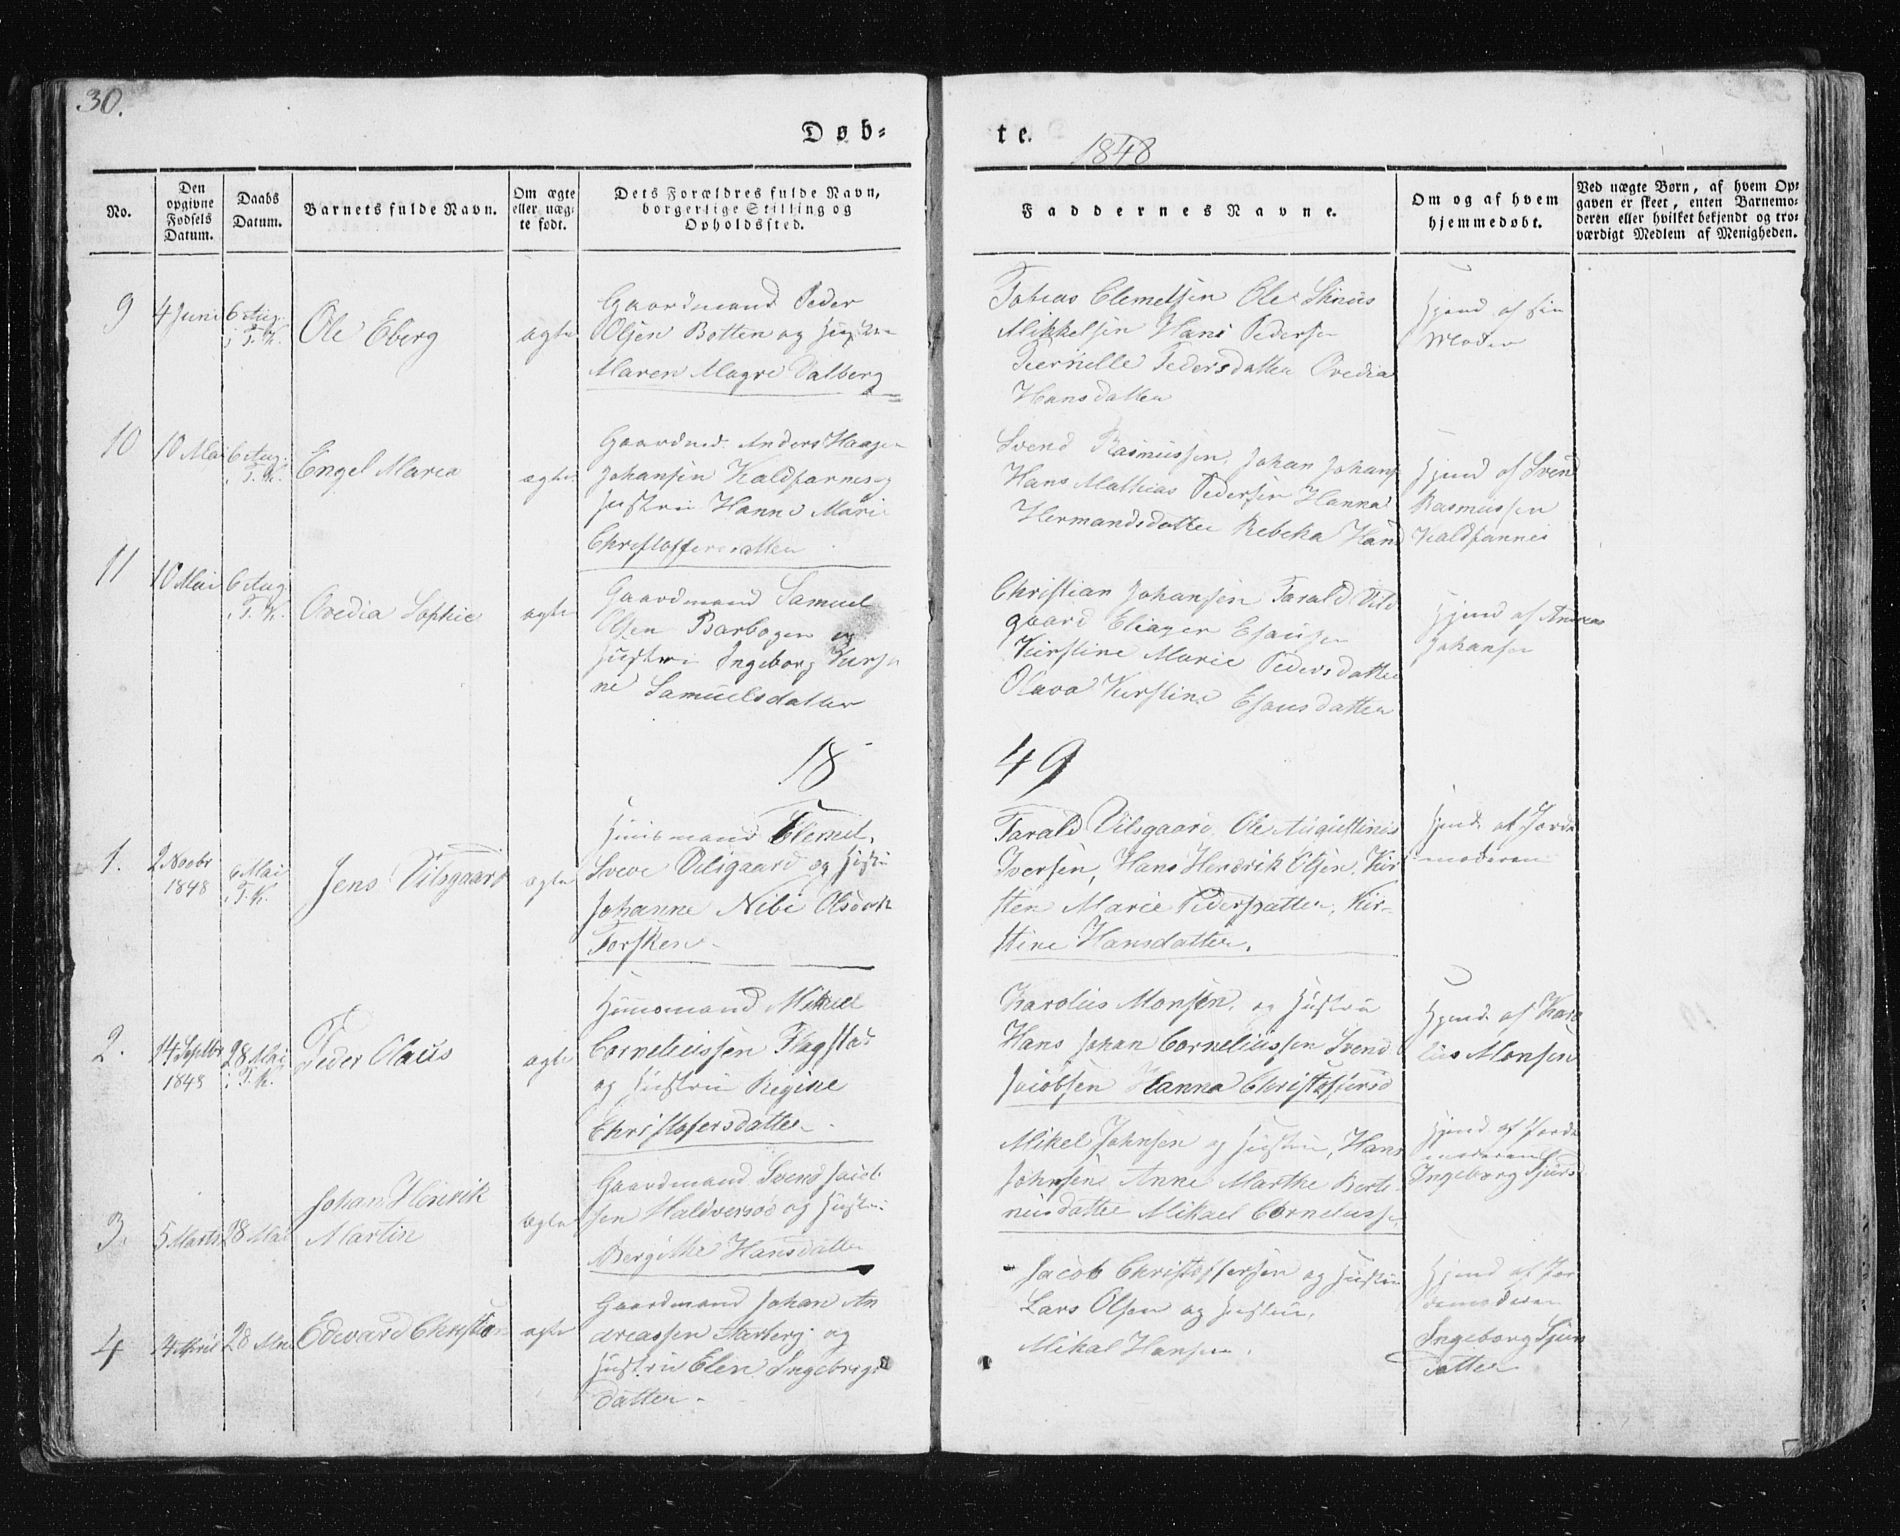 30.
Døb=
te.
1848
No.
Den opgivne Fødsels Datum.
Daabs Datum.
Barnets fulde Navn.
Om ægte eller uægte født.
Dets Forældres fulde Navn, borgerlige Stilling og Opholdssted.
Faddernes Navne.
Om og af hvem hjemmedøbt.
Ved uægte Børn, af hvem Opgaven er skeet, enten Barnemoderen eller hvilket bekjendt og troværdigt Medlem af Menigheden.
9
4 Juni
6 Aug.
i T. K.
Ole Eberg
ægte
Gaardmand Peder
Olsen Botten og Hustru
Maren Magre Dalberg
Tobias Clemetsen Ole
Mikkelsen Hans Pedersen
Pedersdatter Ovedia
Hansdatter
Hjemd af sin
Moder
10
10 Mai
6 Aug.
i T. K.
Engel Maria
ægte
Gaardmd. Anders
Johansen Kaldfarnes og
Hustru Hanne Marie
Christoffersdatter
Svend Rasmussen, Johan Johans
Hans Mathias Pedersen Hanna
Hermandsdatter Rebeka Hans
Hjemd af Sven
Rasmussen
Kaldfarnes
11
10 Mai
6 Aug
i T. K.
Ovedia Sophie
ægte
Gaardmand Samuel
Olsen Barbogen og
Hustru Ingeborg Kirsti
ne Samuelsdatter
Christian Johansen Tarald Vils
gaard Eliaser Esausen
Kirstine Marie Pedersdatter
Olava Kirstine Esausdatter
Hjemd af Andreas
Johansen
18
49
1.
2 Novbr
1848
6 Mai
i T. K.
Jens Vilsgaard
ægte
Huusmand Clemet
Vilsgaard og Hustru
Johanne Olsdatt
Torsken.
Tarald Vilsgaard, Ole Augustinus
Iversen, Hans Hendrik Olsen, Kir
sten Marie Pedersdatter, Kir-
stine Hansdatter.
Hjemd. af Jorde
moderen
2.
14 Septbr
1848
28 Mai
i T. K.
Peder Olaus
ægte
Huusmand Mikael
Corneliussen Flagstad
og Hustru Regine
Christofersdatter
Karolius Monsen, og Hustru
Hans Johan Corneliussen Svend
Jacobsen Hanna Christofersd
Hjemd. af Karo
lius Monsen
3.
5 Marts
28 Mai
Johan Henrik
Martin
ægte
Gaardmand Svend Jacob
sen Haldversøe og Hustru
Bergitte Hansdatter
Mikel Johnsen og Hustru, Hans
Johnsen Anne Marthe Berte-
neusdatter Mikael Corneliusse
Hjemd af Jorde
moderen
Ingeborg Sjursd
4
14 April
28 Mai
Edvard Christian
ægte
Gaardmand Johan An
dreassen og
Hustru Elen Ingebrigs
datter.
Jacob Christoffersen og Hustru
Lars Olsen og Hustru,
Mikal Hansen.
Hjemd af Jor
demoderen
Ingeborg Sjurs
datter